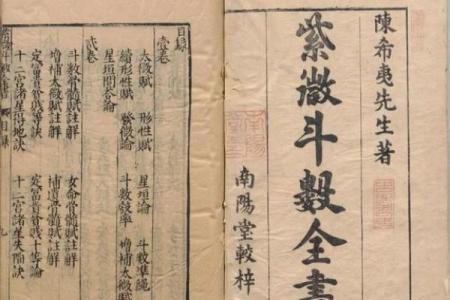 陳希夷先生著
紫微斗數全書
南陽堂較梓
目錄
壹卷
太微賦 形性賦 星垣論 斗數準繩
發微論 斗數發率 增補太微賦
星垣問答論
貳卷
斗數骨髓賦註解 女命骨髓賦註解
增補太微賦註解 髓賦註解
定富貴貧賤等訣 定富貴貧賤十等論
十二宮諸星得地訣 十二宮諸星失陷訣
目錄